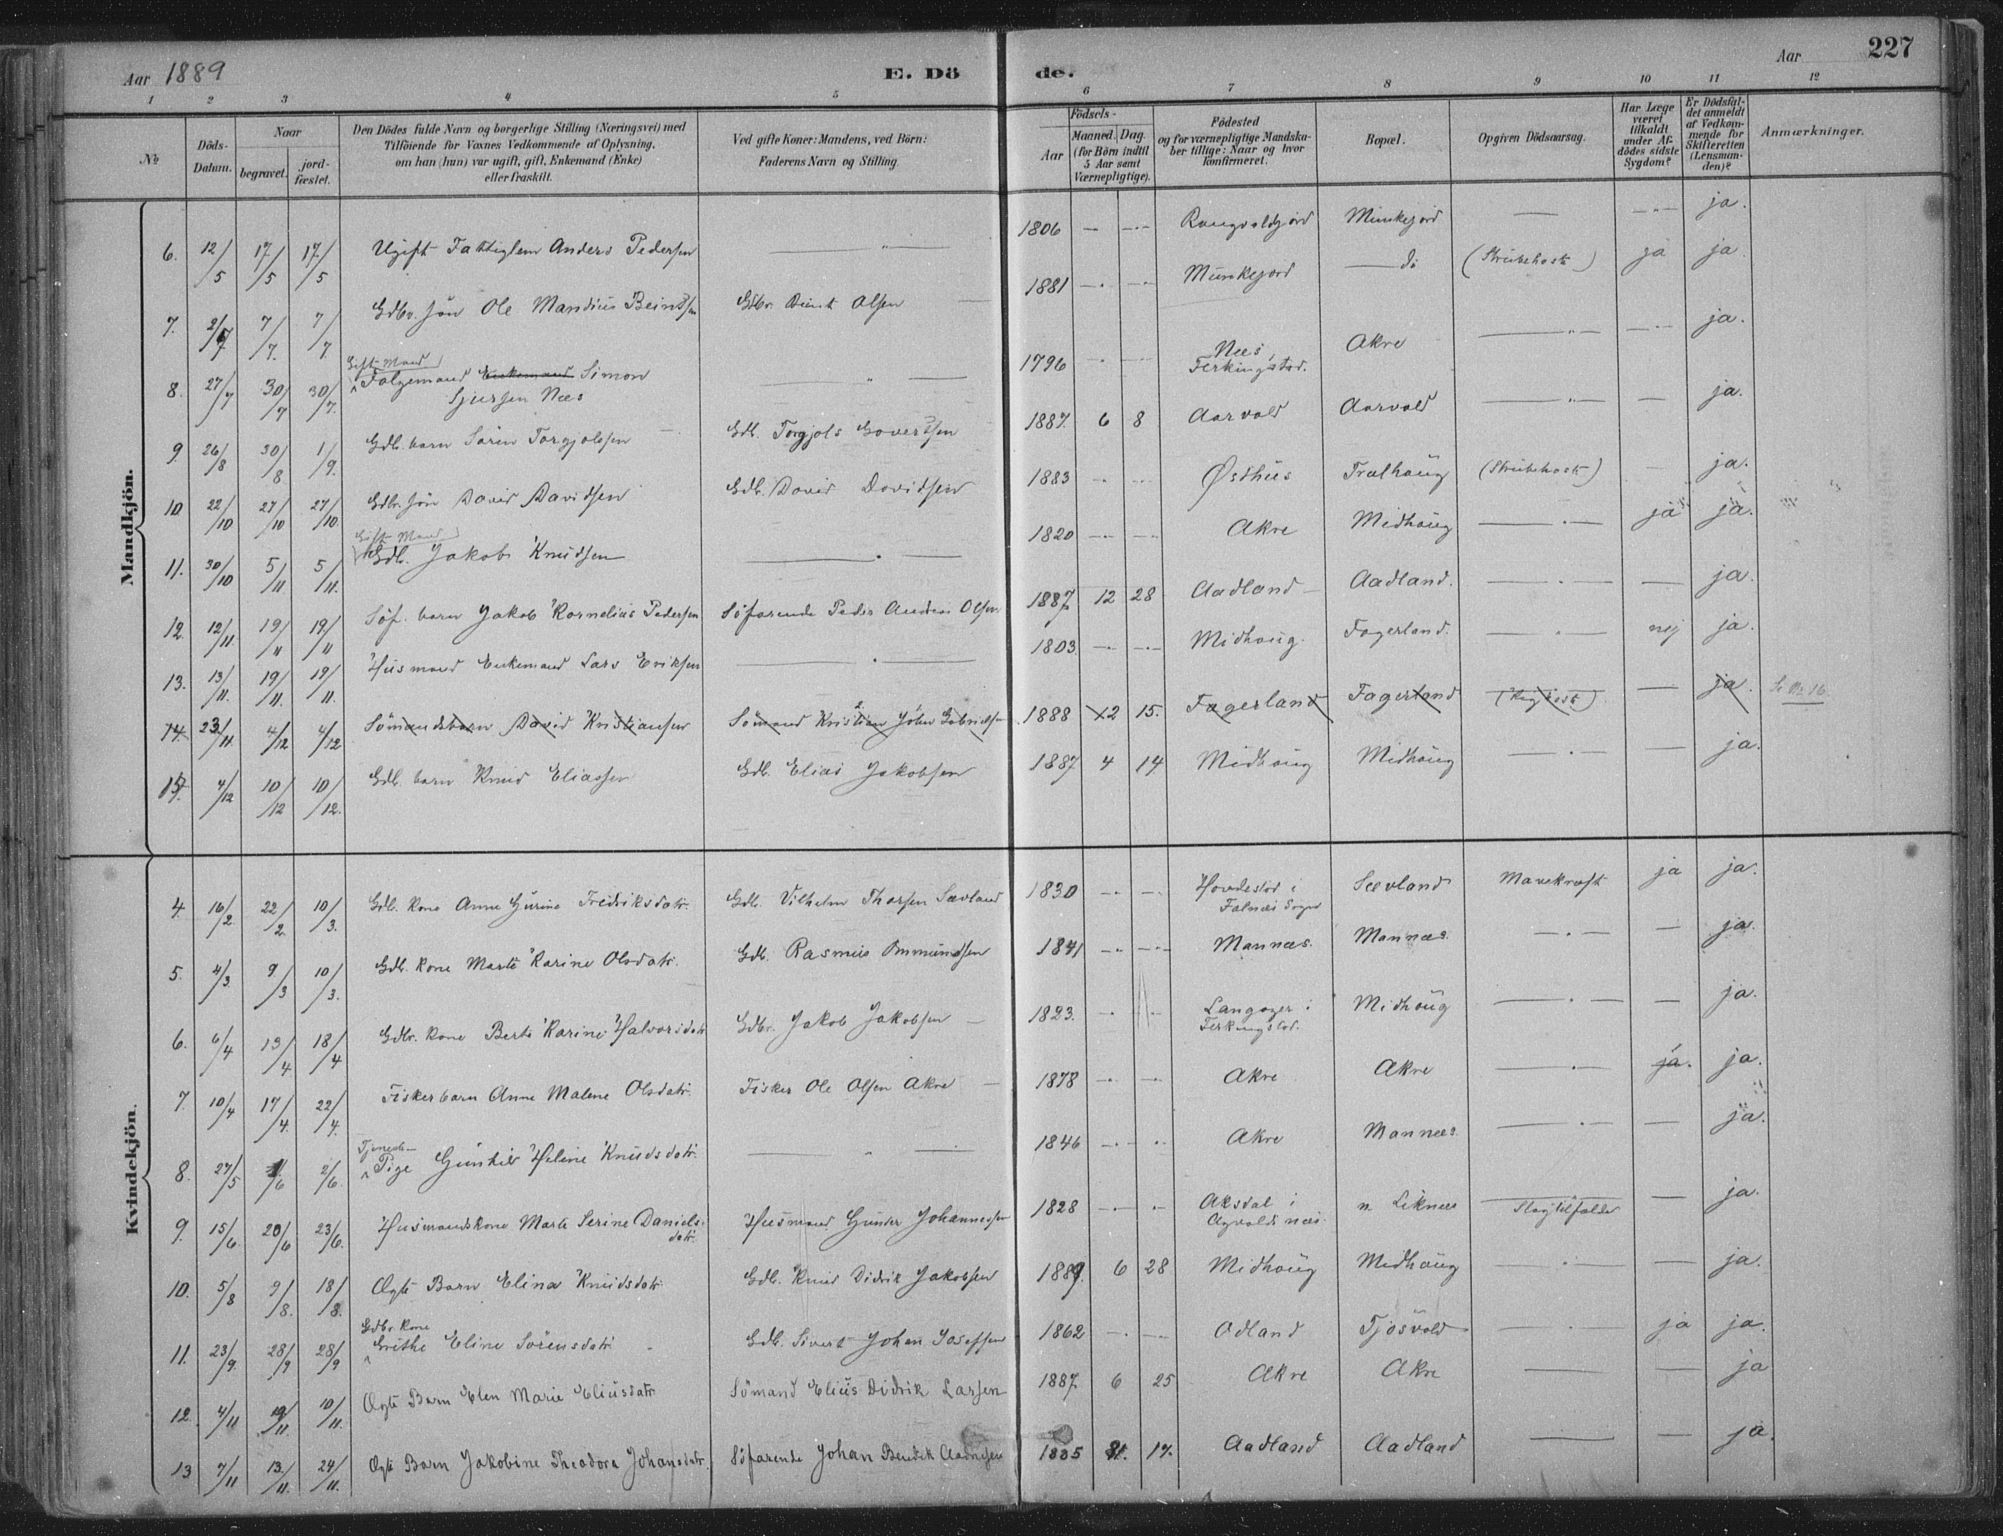 Aar 1889 E. Dö de. Aar 227
1 2 3 4 5 6 7 8 9 10 11 12
№ Döds-Datum. Naar begravet. jord-fæstet. Den Dödes fulde Navn og borgerlige Stilling (Næringsvei) med Tilföiende for Voxnes Vedkommende af Oplysning, om han (hun) var ugift, gift, Enkemand (Enke) eller fraskilt. Ved gifte Koner: Mandens, ved Börn: Faderens Navn og Stilling. Födsels- Aar Maaned. Dag. (for Börn indtil 5 Aar samt Værnepligtige). Födested og for værnepligtige Mandskaber tillige: Naar og hvor konfirmeret. Bopæl. Opgiven Dödsaarsag. Har Læge været tilkaldt under Afdödes sidste Sygdom? Er Dödsfaldet anmeldt af Vedkommende for Skifteretten (Lensmanden)? Anmærkninger.
Mandkjön.
6. 12/5 17/5 17/5 Ugift Fattiglem Anders Pedersen — " — 1806 — — Munkejord — — ja.
7. 2/7 7/7. 7/7. Gdbr. søn Ole Mandius Beintsen Gdbr. Beint Olsen 1881 — — Munkejord — do (Strubehoste) ja ja.
8. 27/7 30/7 30/7. Gift Mand Enkemand Simon Sjursen Næs — " — 1796 — — Næs, Ferkingstad. Akre — " — — ja.
9. 26/8 30/8 1/9. Gdb. barn Sören Torgjolsen Gdb. Torgjols Govertsen 1887. 6 8 Aarvold Aarvold — " — — ja.
10 22/10 27/10 27/10. Gdbr. søn David Davidsen Gdb. David Davidsen 1883 — — Østhus (Strubehoste) — ja.
11. 30/10 5/11 5/11. Gift Mand Gdb. Jakob Knudsen — " — 1820 — — Akre Midhaug — " — ja ja.
12. 12/11 19/11 19/11 Söf. barn Jakob Kornelius Pedersen Söfarende Peder Andreas Olsen 1887. 12 28 Aadland Aadland. — " — — ja.
13. 13/11. 19/11. 19/11. Husmand Enkemand Lars Eriksen — " — 1803. — — Midhaug. Fagerland. — " — nej ja.
14. 23/11. 4/12 4/12 Sömandsbarn David Kristiansen Sömand Kristian John Gabrielsen 1888 12 15. Fagerland Fagerland — ja. Se No 16
15. 4/12 10/12 10/12. Gdb. barn Knud Eliassen Gdb. Elias Jakobsen 1887 4 14 Midhaug Midhaug — " — — ja.
Kvindekjön.
4. 16/2. 22/2. 10/3. Gdb. kone Anne Gurine Fredriksdatr. Gdb. Vilhelm Thorsen Sævland 1830 — — i Falnæs Sogn Sævland Mavekræft ja ja.
5. 4/3 9/3 10/3. Gdb. kone Marte Karine Olsdatr. Gdb. Rasmus Ommundsen 1841 — — Mannæs. Mannæs. — " — — ja.
6. 6/4 13/4 18/4 Gdbr. kone Berte Karine Halvorsdatr Gdbr. Jakob Jakobsen 1823. — — Langager i Ferkingstad. Midhaug — " — — ja.
7. 10/4 17/4. 22/4. Fisker barn Anne Malene Olsdatr. Fisker Ole Olsen Akre 1878 — — Akre Akre — " — ja. ja.
8. 27/5 1/6 2/6. Tjeneste- Pige Gunhild Helene Knudsdatr. — " — 1846 — — Akre Mannæs. — " — — ja.
9. 15/6. 20/6 23/6. Husmandskone Marte Serine Danielsdatr. Husmand Gunder Johannesen 1828 — — Aksdal i Agvaldsnæs. n. Liknæs Slagtilfælde — ja.
10. 5/8 9/8. 18/8. Ægte Barn Elina Knudsdatr. Gdb. Knud Didrik Jakobsen 1889. 6 28 Midhaug Midhaug — " — — ja.
11. 23/9. 28/9 28/9 Gdbr. kone Grethe Eline Sörensdatr. Gdb. Sivert Johan Josefsen 1862 — — Odland Tjösvold — " — ja ja.
12. 4/11 10/11. 10/11. Ægte Barn Elen Marie Eliusdatr Sömand Elius Didrik Larsen 1887. 6 25 Akre Akre — — ja
13 7/11 13/11. 24/11. Ægte Barn Jakobine Theodora Johansdatr. Söfarende Johan Bendik 1885 17. Aadland Aadland — — ja.